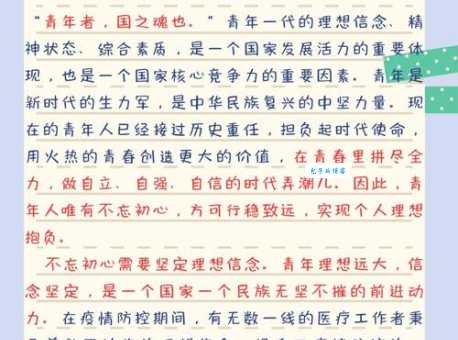 “青年者，国之魂也。”青年一代的理想信念、精
神状态、综合素质，是一个国家发展活力的重要体
现，也是一个国家核心竞争力的重要因素。青年是
新时代的生力军，是中华民族复兴的中坚力量。现
在的青年人已经接过历史重任，担负起时代使命，
用火热的青春创造更大的价值，在青春里拼尽全
力，做自立、自强、自信的时代弄潮儿。因此，青
年人唯有不忘初心，方可行稳致远，实现个人理想
抱负。
不忘初心需要坚定理想信念。青年理想远大，信
念坚定，是一个国家一个民族无坚不摧的前进动
力。在疫情防控期间，有无数一线的医疗工作者秉